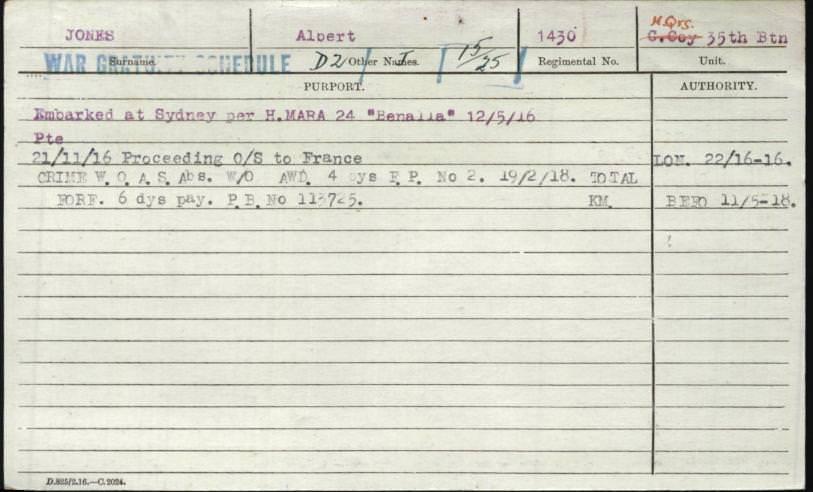 H.Qrs.
JONES Albert 1430 C.Coy 35th Btn
WAR GRATUITY SCHEDULE D2 I 15/25
Surname. Other Names. Regimental No. Unit.
PURPORT. AUTHORITY.
Embarked at Sydney per H.MARA 24 "Benalla" 12/5/16
Pte
21/11/16 Proceeding O/S to France LON. 22/16-16.
CRIME W.O.A.S. Abs. W/O AWD. 4 dys F.P. No 2. 19/2/18. TOTAL
FORF. 6 dys pay. P.B.No 113725. KM. BEFO 11/5-18.
D.825/2.16.—C.2024.